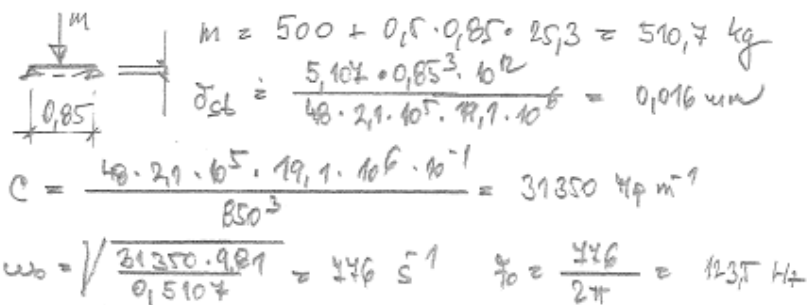 m
m = 500 + 0,5 · 0,85 · 25,3 = 510,7 kg
0,85
δst = 5,107 · 0,85³ · 10¹² / 48 · 2,1 · 10⁵ · 19,1 · 10⁶ = 0,016 mm
C = 48 · 2,1 · 10⁵ · 19,1 · 10⁶ · 10⁻¹ / 850³ = 31350 Mp m⁻¹
ω₀ = √ 31350 · 9,81 / 0,5107 = 776 s⁻¹ f₀ = 776 / 2π = 123,5 Hz